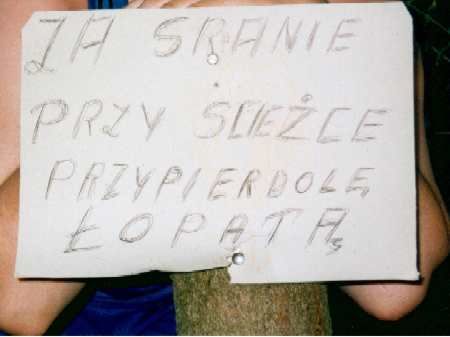 ZA SRANIE
PRZY SCIEŻCE
PRZYPIERDOLĘ
ŁOPATĄ